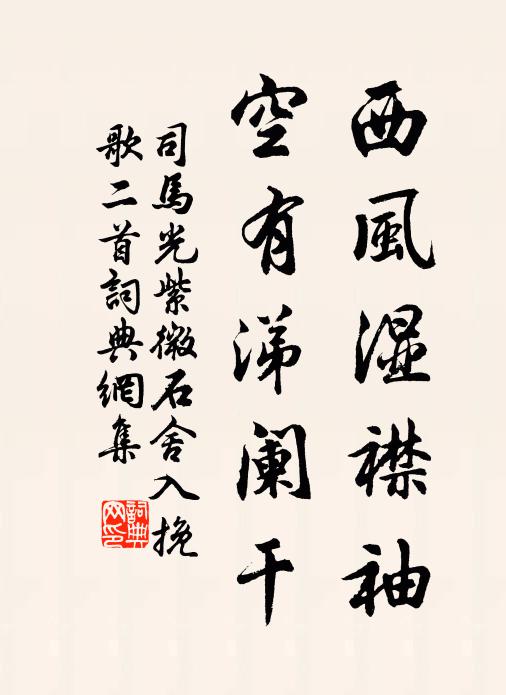 西風湿襟袖
空有涕阑干
司馬光紫微石舍入挽
歌二首詞典網集
詞典
网印